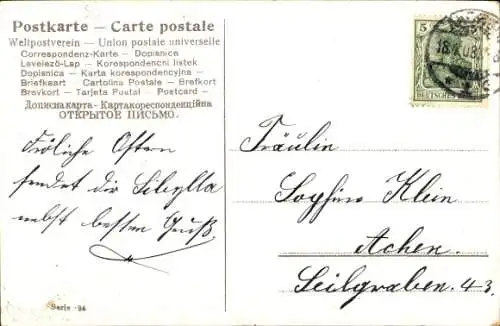 Postkarte — Carte postale
Weltpostverein — Union postale universelle
Correspondenz-Karte — Dopisnica
Levelező-Lap — Korespondenční listek
Dopisnica — Karta korendencyjna —
Briefkaart Cartolina Postale — Brefkort
Brevkort — Tarjeta Postal — Postcard —
Дописна карта - Картакореспонденційна
ОТКРЫТОЕ ПИСЬМО.
Fröliche Ostern
sendet dir Sibylla
nebst besten Gruß
Serie -94
5
DEUTSCHES
18. 08
Fräulin
Sophine Klein
Achen
Seilgraben 43.